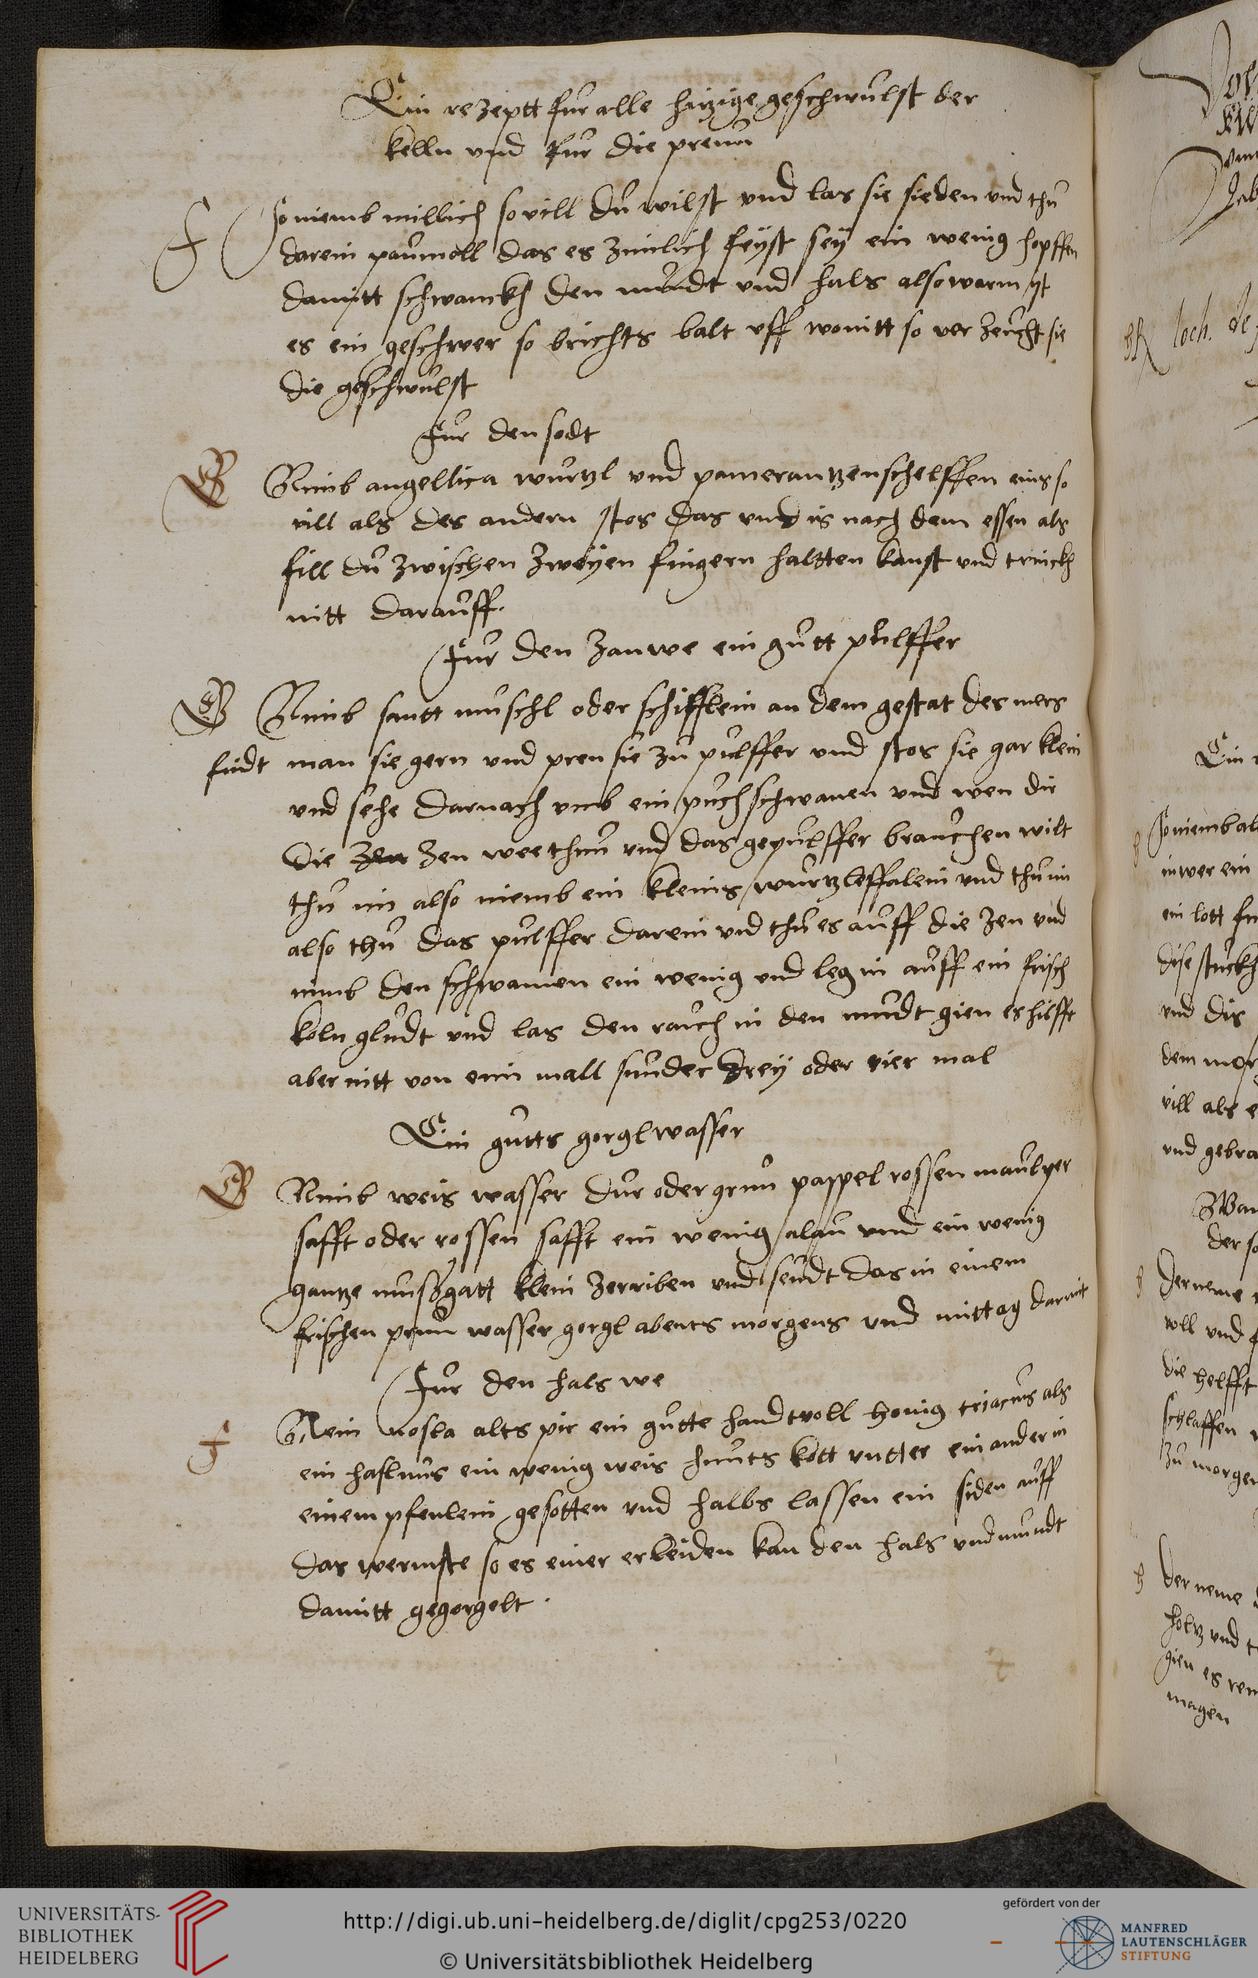 Ein rezeptt fur alle hitzige geschwulst der
kelln vnd fur die preun
So niemb millich so vill du wilst vnd las sie sieden vnd thu
darein paumoll das es zimlich feyst sey ein wenig hopffen
damitt schwanckh den mundt vnd hals also warm yst
es ein geschwer so brichts balt vff wonitt so ver zeucht sie
die geschwulst
Fur den sodt
Nimb angellica wurtzl vnd pamerantzenschelffen eins so
vill als des andern stos das vnd is nach dem essen als
fill du zwischen zweyen fingern haltten kanst vnd trinckh
nitt darauff.
Fur den zanwe ein gutt pulffer
Nimb santt muschl oder schifflein an dem gestat des mers
findt man sie gern vnd pren sie zu pulffer vnd stos sie gar klein
vnd sehe darnach vmb ein puchschwamen vnd wen dir
die zen wee thun vnd das gepulffer brauchen wilt
thu im also niemb ein kleins wurtzleffalein vnd thu im
also thu das pulffer darein vnd thu es auff die zen vnd
nimb den schwamen ein wenig vnd leg in auff ein frisch
koln gludt vnd las den rauch in den mundt gien es hilfft
aber nitt von eim mall sunder drey oder vier mal
Ein gutts gorgl wasser
Nimb weis wasser dur oder grun pappel rossen maulper
safft oder rossen safft ein wenig alaun vnd ein wenig
gantze mußgatt klein zerriben vnd seudt das in einem
frischen prun wasser gorgl abents morgens vnd mittag darmit
Fur den hals we
Nem alts pir ein gutte handtvoll honig triacus als
ein haslnus ein wenig weis hunts kott vntter ein ander in
einem pfenlein gesotten vnd halbs lassen ein siden auff
das wermste so es einer erleiden kan den hals vnd mundt
damitt gegorgelt .
loch. de
Ein
So niemb
inwer ein
ein lott
dise stuckh
vnd dis
dem mer
vill als
vnd gebra
der so
der neme
woll vnd
die helfft
schlaffen
zu morgen
der neme
holtz vnd
gien es
magen
UNIVERSITÄTS-
BIBLIOTHEK
HEIDELBERG
http://digi.ub.uni-heidelberg.de/diglit/cpg253/0220
© Universitätsbibliothek Heidelberg
gefördert von der
MANFRED
LAUTENSCHLÄGER
STIFTUNG